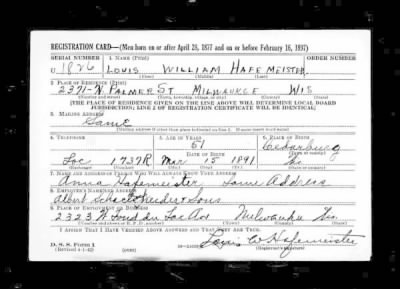 REGISTRATION CARD—(Men born on or after April 28, 1877 and on or before February 16, 1897)
SERIAL NUMBER 1. NAME (Print) ORDER NUMBER
U 1826 LOUIS WILLIAM HAFEMEISTER
(First) (Middle) (Last)
2. PLACE OF RESIDENCE (Print)
2371-N. PALMER ST MILWAUKEE WIS
(Number and street) (Town, township, village, or city) (County) (State)
[THE PLACE OF RESIDENCE GIVEN ON THE LINE ABOVE WILL DETERMINE LOCAL BOARD
JURISDICTION; LINE 2 OF REGISTRATION CERTIFICATE WILL BE IDENTICAL]
3. MAILING ADDRESS
Same
[Mailing address if other than place indicated on line 2. If same insert word same]
4. TELEPHONE 5. AGE IN YEARS 6. PLACE OF BIRTH
51 Cedarburg
DATE OF BIRTH (Town or county)
Loc 1737R Mar 15 1891 Wis
(Exchange) (Number) (Mo.) (Day) (Yr.) (State or country)
7. NAME AND ADDRESS OF PERSON WHO WILL ALWAYS KNOW YOUR ADDRESS
Anna Hafemeister Same Address
8. EMPLOYER'S NAME AND ADDRESS
Albert & Sons
9. PLACE OF EMPLOYMENT OR BUSINESS
2323 W Fond du Lac Av Milwaukee Wis
(Number and street or R. F. D. number) (Town) (County) (State)
I AFFIRM THAT I HAVE VERIFIED ABOVE ANSWERS AND THAT THEY ARE TRUE.
D. S. S. Form 1
(Revised 4-1-42) (over)
Louis W Hafemeister
(Registrant's signature)